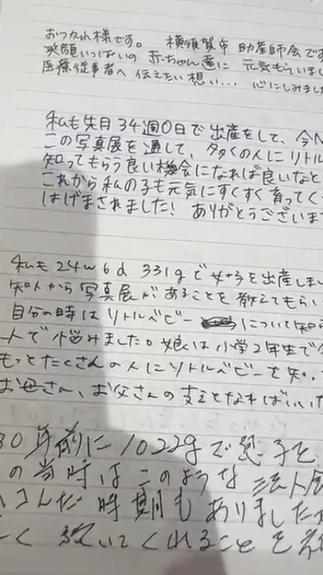 おつかれ様です。 横須賀市助産師会です
笑顔いっぱいの 赤ちゃん達に 元気もらいまし
医療従事者へ 伝えたい想い… 心にしみまし
私も先月34週0日で出産をして、今N
この写真展を通して、多くの人にリトル
知ってもらう良い機会になれば良いなと
これから私の子も元気にすくすく育ってく
はげまされました! ありがとうございま
私も24w6d 331gで女子を出産しま
知人から写真展があることを教えてもらい
自分の時はリトルベビー について知
人で悩みました。娘は小学2年生で
もっとたくさんの人にリトルベビーを知っ
お母さん、お父さんの支えとなればいい
30年前に1022gで息子を
の当時はこのような
コんだ時期もありました
続いてくれることを